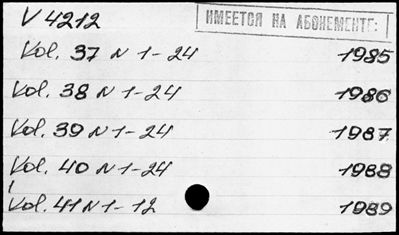 V 4212
ИМЕЕТСЯ НА АБОНЕМЕНТЕ:
Vol. 37 N 1-24 1985
Vol. 38 N 1-24 1986
Vol. 39 N 1-24 1987
Vol. 40 N 1-24 1988
Vol. 41 N 1-12 1989